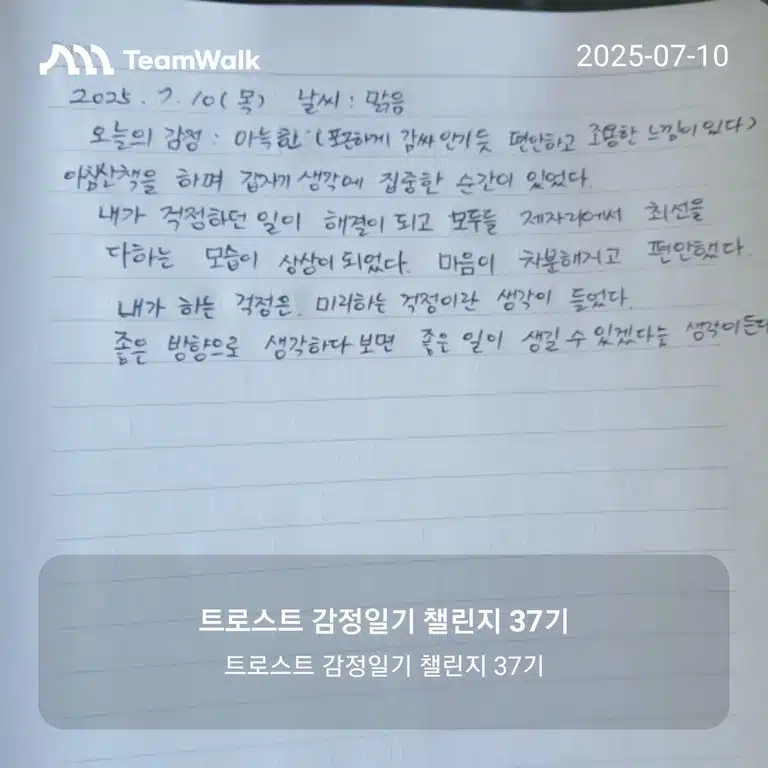 TeamWalk
2025-07-10
2025. 7. 10(목) 날씨 : 맑음
오늘의 감정 : 아늑한 (포근하게 감싸 안기듯 편안하고 조용한 느낌이 있다)
아침산책을 하며 갑자기 생각에 집중한 순간이 있었다.
내가 걱정하던 일이 해결이 되고 모두들 제자리에서 최선을
다하는 모습이 상상이 되었다. 마음이 차분해지고 편안했다.
내가 하는 걱정은. 미리하는 걱정이란 생각이 들었다.
좋은 방향으로 생각하다 보면 좋은 일이 생길 수 있겠다는 생각이 든다
트로스트 감정일기 챌린지 37기
트로스트 감정일기 챌린지 37기